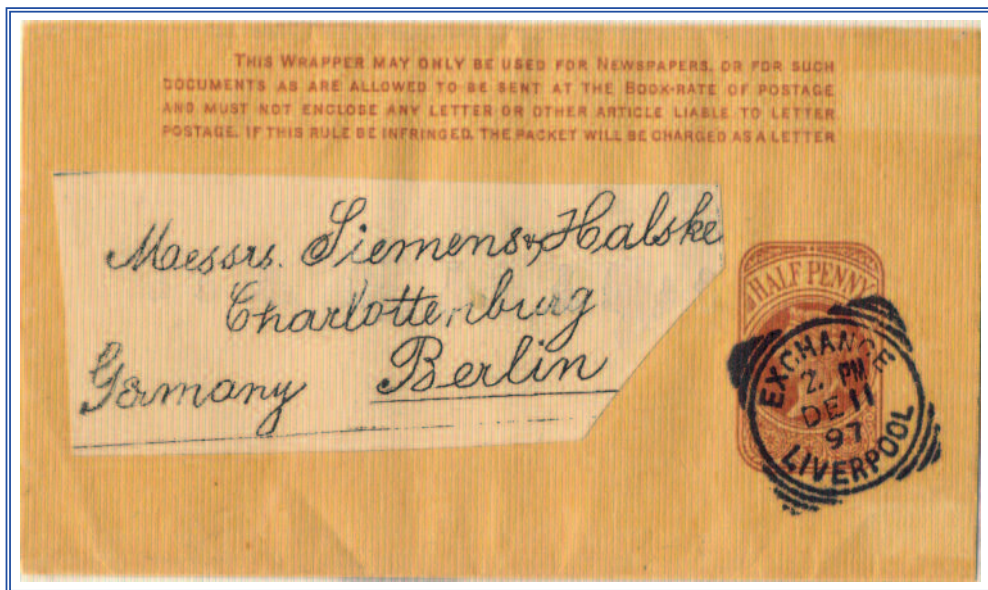 THIS WRAPPER MAY ONLY BE USED FOR NEWSPAPERS, OR FOR SUCH
DOCUMENTS AS ARE ALLOWED TO BE SENT AT THE BOOK-RATE OF POSTAGE
AND MUST NOT ENCLOSE ANY LETTER OR OTHER ARTICLE LIABLE TO LETTER
POSTAGE. IF THIS RULE BE INFRINGED, THE PACKET WILL BE CHARGED AS A LETTER
Messrs. Siemens & Halske
Charlottenburg
Germany Berlin
HALF PENNY
EXCHANGE
2. PM
DE 11
97
LIVERPOOL